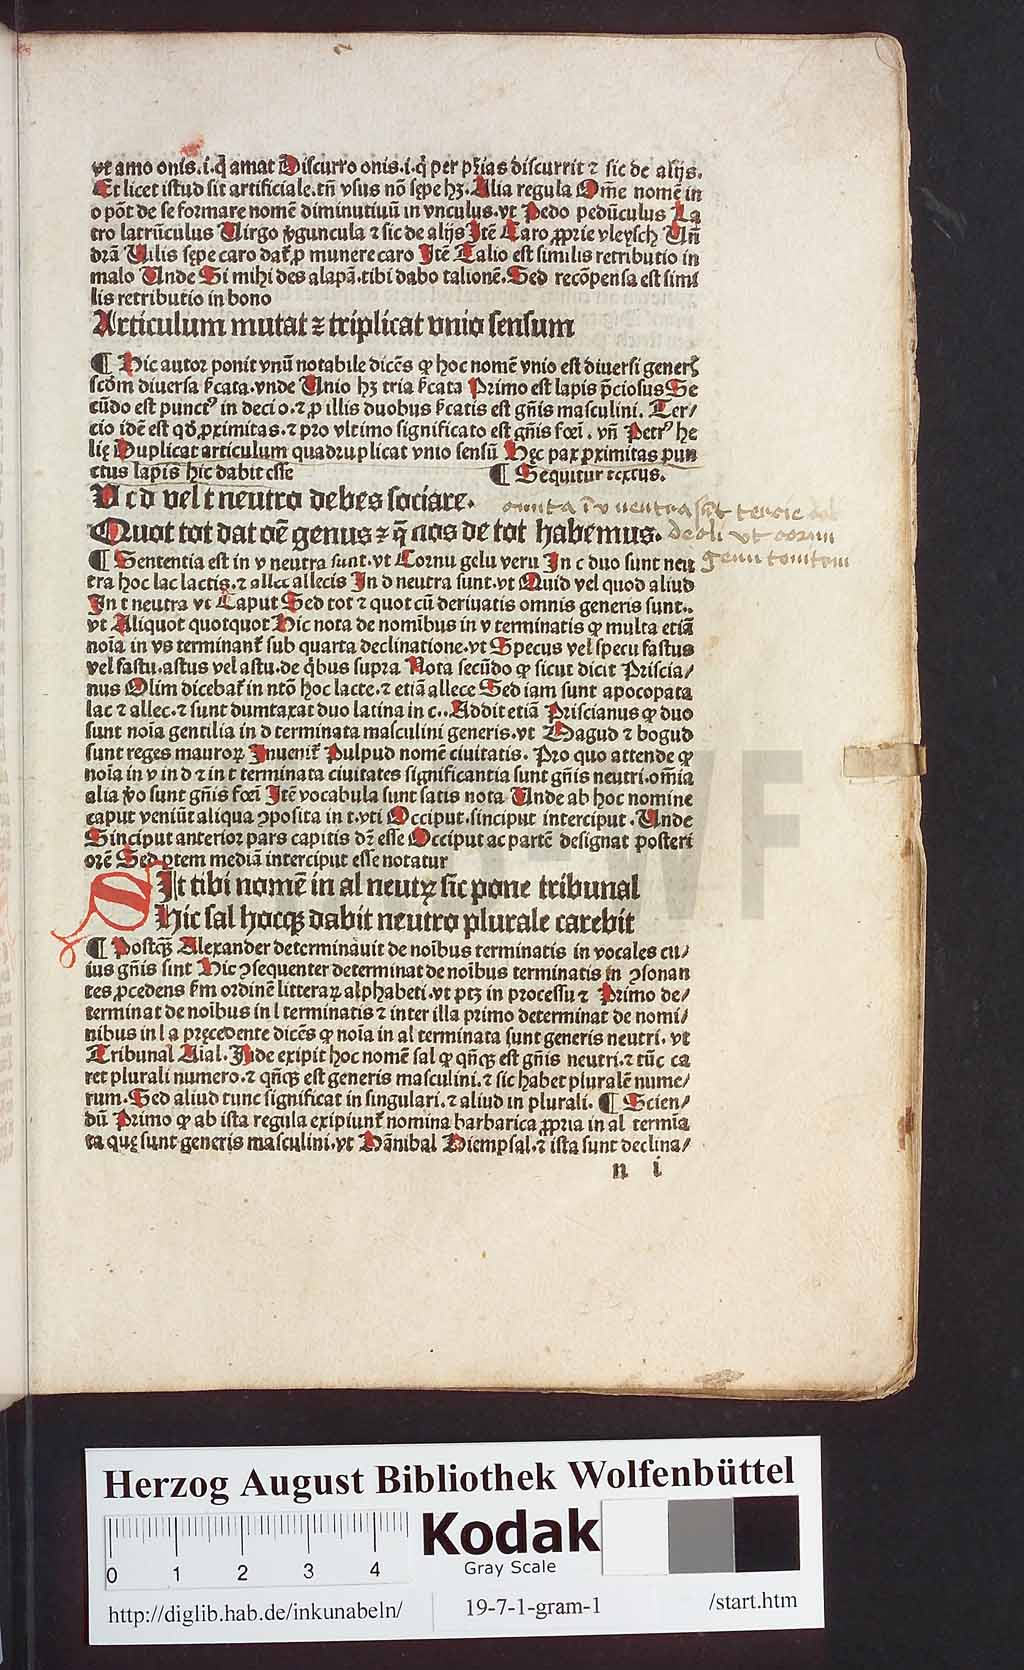 vt amo onis.i.q̄ amat Discurro onis.i.q̄ per pr̄ias discurrit ⁊ sic de alijs.
Et licet istud sit artificiale.tn̄ vsus nō sępe hꝫ.Alia regula Om̄e nomē in
o pōt de se formare nomē diminutiuū in vnculus.vt Pedo pedūculus La
tro latrūculus Virgo v̄guncula ⁊ sic de alijs Itē Caro ꝓprie vleysch Vn̄
Vilis sępe caro dat̄ ꝓ munere caro Itē Talio est similis retributio in
malo Vnde Si mihi des alapā.tibi dabo talionē.Sed recōpensa est simi
lis retributio in bono
Articulum mutat ⁊ triplicat vnio sensum
¶ Hic autor ponit vnū notabile dicēs ꝙ hoc nomē vnio est diuersi gener̄
scd̄m diuersa k̄cata.vnde Vnio hꝫ tria k̄cata Primo est lapis p̄ciosus Se
cūdo est punctꝰ in decio.⁊ ꝓ illis duobus k̄catis est gn̄is masculini. Ter/
cio idē est qd̄ ꝓximitas.⁊ pro vltimo significato est gn̄is fœī. vn̄ Petrꝰ he
lię Duplicat articulum quadruplicat vnio sensū Hęc pax ꝓximitas pun
ctus lapis hic dabit esse ¶ Sequitur textus.
V c d vel t neutro debes sociare.
Quot tot dat oē genus ⁊ q̄ nos de tot habemus.
¶ Sententia est in v neutra sunt.vt Cornu gelu veru In c duo sunt neu
tra hoc lac lactis.⁊ allec allecis In d neutra sunt.vt Quid vel quod aliud
In t neutra vt Caput Sed tot ⁊ quot cū deriuatis omnis generis sunt..
vt Aliquot quotquot Hic nota de nomībus in v terminatis ꝙ multa etiā
noīa in vs terminant̄ sub quarta declinatione.vt Specus vel specu fastus
vel fastu.astus vel astu.de q̄bus supra Nota secūdo ꝙ sicut dicit Priscia/
nus Olim dicebat̄ in ntō hoc lacte.⁊ etiā allece Sed iam sunt apocopata
lac ⁊ allec.⁊ sunt dumtaxat duo latina in c..Addit etiā Priscianus ꝙ duo
sunt noīa gentilia in d terminata masculini generis.vt Magud ⁊ bogud
sunt reges mauroꝝ Inuenit̄ Pulpud nomē ciuitatis. Pro quo attende ꝙ
noīa in v in d ⁊ in t terminata ciuitates significantia sunt gn̄is neutri.om̄ia
alia v̄o sunt gn̄is fœī Itē vocabula sunt satis nota Vnde ab hoc nomine
caput veniūt aliqua ꝯposita in t.vti Occiput.sinciput interciput.Vnde
Sinciput anterior pars capitis dꝫ esse Occiput ac partē designat posteri
orē Sed ptem mediā interciput esse notatur
SIt tibi nomē in al neutꝝ sic pone tribunal
Hic sal hocqꝫ dabit neutro plurale carebit
¶ Postqꝫ Alexander determinauit de noībus terminatis in vocales cu/
ius gn̄is sint Hic ꝯsequenter determinat de noībus terminatis in ꝯsonan
tes ꝓcedens k̄m ordinē litteraꝝ alphabeti.vt ptꝫ in processu ⁊ Primo de/
terminat de noībus in l terminatis ⁊ inter illa primo determinat de nomi/
nibus in l a pręcedente dicēs ꝙ noīa in al terminata sunt generis neutri. vt
Tribunal Aial.Inde exipit hoc nomē sal ꝙ qn̄qꝫ est gn̄is neutri.⁊ tūc ca
ret plurali numero.⁊ qn̄qꝫ est generis masculini.⁊ sic habet pluralē nume/
rum.Sed aliud tunc significat in singulari.⁊ aliud in plurali. ¶ Scien/
dū Primo ꝙ ab ista regula exipiunt̄ nomina barbarica ꝓpria in al termīa
ta quę sunt generis masculini.vt Hānibal Hiempsal.⁊ ista sunt declina/
n i
Herzog August Bibliothek Wolfenbüttel
Kodak
Gray Scale
0 1 2 3 4
http://diglib.hab.de/inkunabeln/ 19-7-1-gram-1 /start.htm